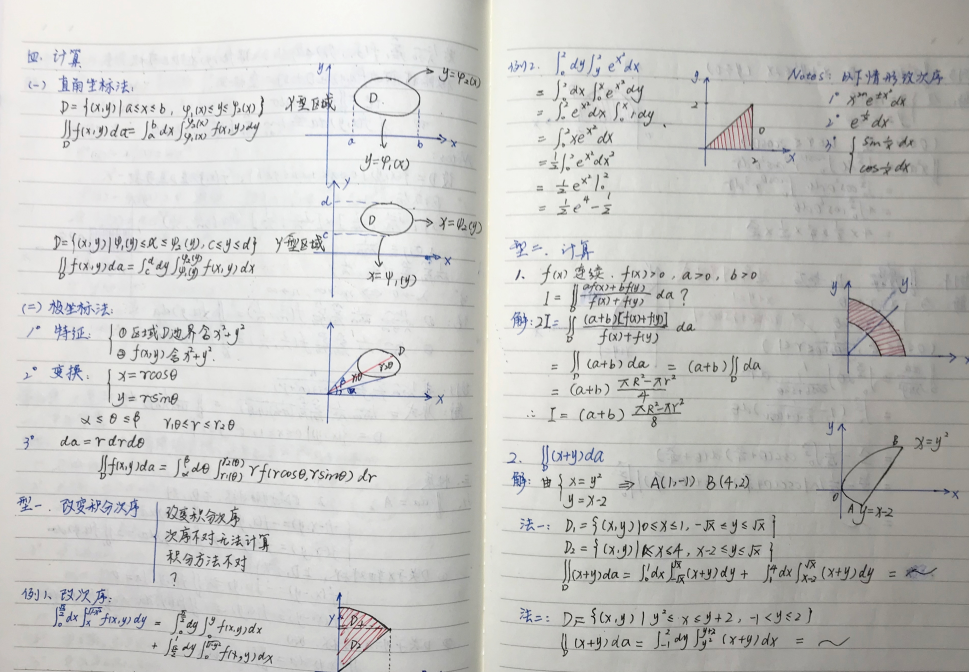 四. 计算
(一) 直角坐标法:
D = {(x,y) | a≤x≤b, φ₁(x)≤y≤φ₂(x)} X型区域
∬_D f(x,y)da = ∫_a^b dx ∫_{φ₁(x)}^{φ₂(x)} f(x,y)dy
y
y=φ₂(x)
D
a b x
y=φ₁(x)
y
d
D
x=ψ₂(y)
c
x
x=ψ₁(y)
D={(x,y)|ψ₁(y)≤x≤ψ₂(y), c≤y≤d} Y型区域
∬_D f(x,y)da = ∫_c^d dy ∫_{ψ₁(y)}^{ψ₂(y)} f(x,y)dx
(二) 极坐标法:
1° 特征: { ① 区域D边界含x²+y²
② f(x,y)含x²+y².
2° 变换: { x=rcosθ
y=rsinθ
α≤θ≤β r₁θ≤r≤r₂θ
D
x
3° da=rdrdθ
∬_D f(x,y)da = ∫_α^β dθ ∫_{r₁(θ)}^{r₂(θ)} rf(rcosθ,rsinθ)dr
型一. 改变积分次序
改变积分次序
次序不对无法计算
积分方法不对
?
例1、改次序:
f(x,y)dy = f(x,y)dx
+ f(x,y)dx
y
D₁
D₂
例2. ∫_0^2 dy ∫_y^2 e^{x²}dx
= ∫_0^2 dx ∫_0^x e^{x²}dy
= ∫_0^2 e^{x²}dx ∫_0^x 1dy
= ∫_0^2 xe^{x²}dx
= ½∫_0^2 e^{x²}dx²
= ½ e^{x²}|_0^2
= ½e⁴-½
y
2
2 x
Notes: 以下情形改次序
1° x^{2n}e^{±x²}dx
2° dx
3° { sin dx
cos dx
型二. 计算
1. f(x)连续. f(x)>0, a>0, b>0
I = ∬_D (af(x)+bf(y))/(f(x)+f(y)) da ?
解: 2I = ∬_D (a+b)[f(x)+f(y)]/(f(x)+f(y)) da
= ∬_D (a+b)da = (a+b)∬_D da
= (a+b) (πR²-πr²)/4
∴ I = (a+b) (πR²-πr²)/8
y
x
2. ∬_D (x+y)da
解: 由 { x=y²
y=x-2 ⇒ A(1,-1) B(4,2)
y
B x=y²
0 x
A y=x-2
法一: D₁={(x,y)|0≤x≤1, -√x≤y≤√x}
D₂={(x,y)|1≤x≤4, x-2≤y≤√x}
∬_D (x+y)da = ∫_0^1 dx ∫_{-√x}^{√x} (x+y)dy + ∫_1^4 dx ∫_{x-2}^{√x} (x+y)dy =
法二: D={(x,y)|y²≤x≤y+2, -1<y≤2}
∬_D (x+y)da = ∫_{-1}^2 dy ∫_{y²}^{y+2} (x+y)dx =